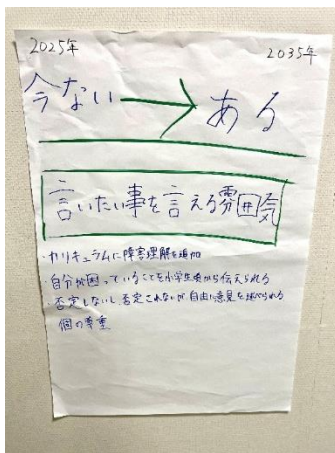 2025年 2035年
今ない→ある
言いたい事を言える雰囲気
・カリキュラムに障害理解を追加
・自分が困っていることを小学生頃から伝えられる
・否定しないし否定されないが自由に意見を述べられる
個の尊重